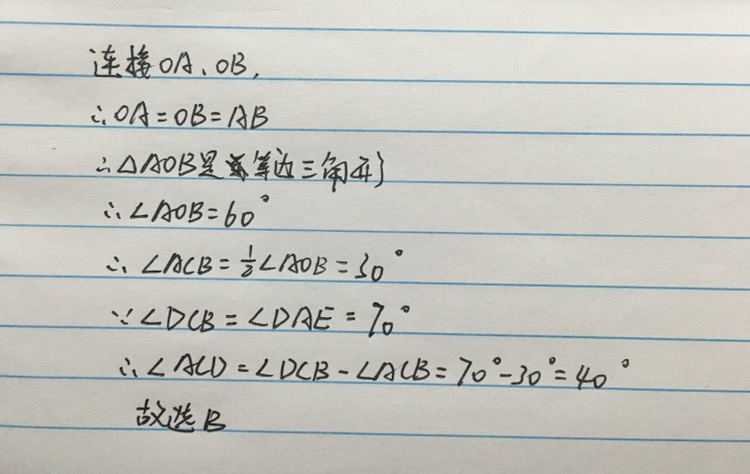 连接OA、OB,
∴OA=OB=AB
∴△AOB是等边三角形
∴∠AOB=60°
∴∠ACB=½∠AOB=30°
∵∠DCB=∠DAE=70°
∴∠ACD=∠DCB-∠ACB=70°-30°=40°
故选B